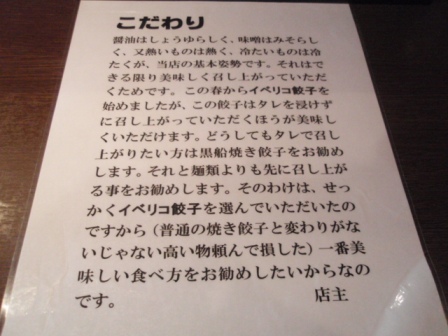 こだわり
醤油はしょうゆらしく、味噌はみそらし
く、又熱いものは熱く、冷たいものは冷
たくが、当店の基本姿勢です。それはで
きる限り美味しく召し上がっていただ
くためです。この春からイベリコ餃子を
始めましたが、この餃子はタレを浸けず
に召し上がっていただくほうが美味し
くいただけます。どうしてもタレで召し
上がりたい方は黒船焼き餃子をお勧め
します。それと麺類よりも先に召し上が
る事をお勧めします。そのわけは、せっ
かくイベリコ餃子を選んでいただいたの
ですから(普通の焼き餃子と変わりがな
いじゃない高い物頼んで損した)一番美
味しい食べ方をお勧めしたいからなの
です。 店主